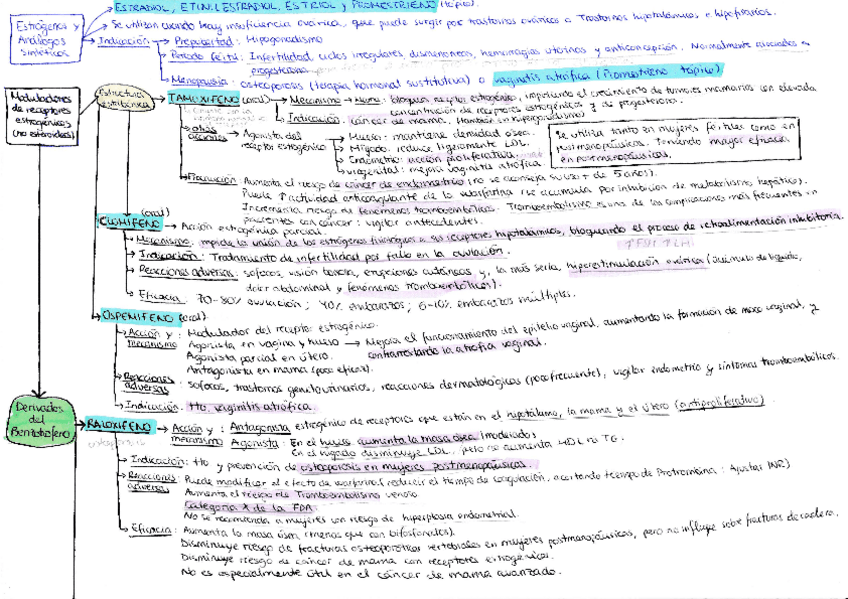 ESTRADIOL, ETINILESTRADIOL, ESTRIOL y PROMESTRIENO (tópico).
Estrógenos y Análogos Sintéticos
Se utilizan cuando hay insuficiencia ovárica, que puede surgir por trastornos ováricos o trastornos hipotalámicos e hipofisarios.
Indicación → Prepubertad: Hipogonadismo
Periodo fértil: Infertilidad, ciclos irregulares, dismenorrea, hemorragias uterinas y anticoncepción. Normalmente asociados a progesterona
Menopausia: osteoporosis (terapia hormonal sustitutiva) o vaginitis atrófica (Promestrieno tópico)
Moduladores de receptores estrogénicos (no esteroideos)
Estructura estilbénica
TAMOXIFENO (oral) → Mecanismo → Mama: bloquean receptor estrogénico, impidiendo el crecimiento de tumores mamarios con elevada concentración de receptores estrogénicos y de progesterona.
Indicación: cáncer de mama.
otras acciones → Agonista del receptor estrogénico
Hueso: mantiene densidad ósea.
Hígado: reduce ligeramente LDL.
Endometrio: acción proliferativa
Urogenital: mejora vaginitis atrófica
Se utiliza tanto en mujeres fértiles como en postmenopáusicas. Teniendo mayor eficacia en postmenopáusicas.
Precaución: Aumenta el riesgo de cáncer de endometrio (no se aconseja su uso + de 5 años).
Puede ↑ actividad anticoagulante de la warfarina (se acumula por inhibición de metabolismo hepático).
Incrementa riesgo de fenómenos tromboembólicos. Tromboembolismo es una de las complicaciones más frecuentes en pacientes con cáncer: vigilar antecedentes
CLOMIFENO (oral) → Acción estrogénica parcial.
Mecanismo: impide la unión de los estrógenos fisiológicos a sus receptores hipotalámicos, bloqueando el proceso de retroalimentación inhibitoria.
↑FSH ↑LH
Indicación: Tratamiento de infertilidad por fallo en la ovulación.
Reacciones adversas: sofocos, visión borrosa, erupciones cutáneas y, la más seria, hiperestimulación ovárica (acúmulo de líquido, dolor abdominal y fenómenos tromboembólicos).
Eficacia: 70-80% ovulación; 40% embarazos; 6-10% embarazos múltiples.
OSPEMIFENO (oral)
Acción y mecanismo: Modulador del receptor estrogénico.
Agonista en vagina y hueso → Mejora el funcionamiento del epitelio vaginal, aumentando la formación de moco vaginal, y contrarrestando la atrofia vaginal.
Agonista parcial en útero.
Antagonista en mama (poco eficaz).
Reacciones adversas: sofocos, trastornos genitourinarios, reacciones dermatológicas (poco frecuente), vigilar endometrio y síntomas tromboembólicos.
Indicación: tto. vaginitis atrófica.
Derivados del Benzotiofeno
RALOXIFENO → Acción y mecanismo: Antagonista estrogénico de receptores que están en el hipotálamo, la mama y el útero (antiproliferativo)
Agonista: En el hueso aumenta la masa ósea (moderada)
En el hígado disminuye LDL, pero no aumenta HDL ni TG.
Indicación: tto y prevención de osteoporosis en mujeres postmenopáusicas.
Reacciones adversas: Puede modificar el efecto de warfarina (reducir el tiempo de coagulación, acortando tiempo de Protrombina: Ajustar INR)
Aumenta el riesgo de Tromboembolismo venoso
Categoría X de la FDA.
No se recomienda a mujeres con riesgo de hiperplasia endometrial.
Eficacia: Aumenta la masa ósea (menos que con bifosfonatos).
Disminuye riesgo de fracturas osteoporóticas vertebrales en mujeres postmenopáusicas, pero no influye sobre fracturas de cadera.
Disminuye riesgo de cáncer de mama con receptores estrogénicos.
No es especialmente útil en el cáncer de mama avanzado.